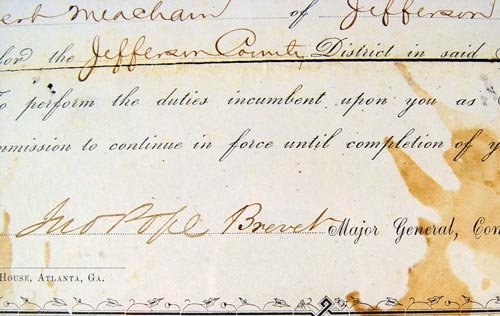 ert Meacham of Jefferson
for the Jefferson County District in said
To perform the duties incumbent upon you as
mmission to continue in force until completion of y
Jno Pope Brevet Major General, Com
House, Atlanta, Ga.